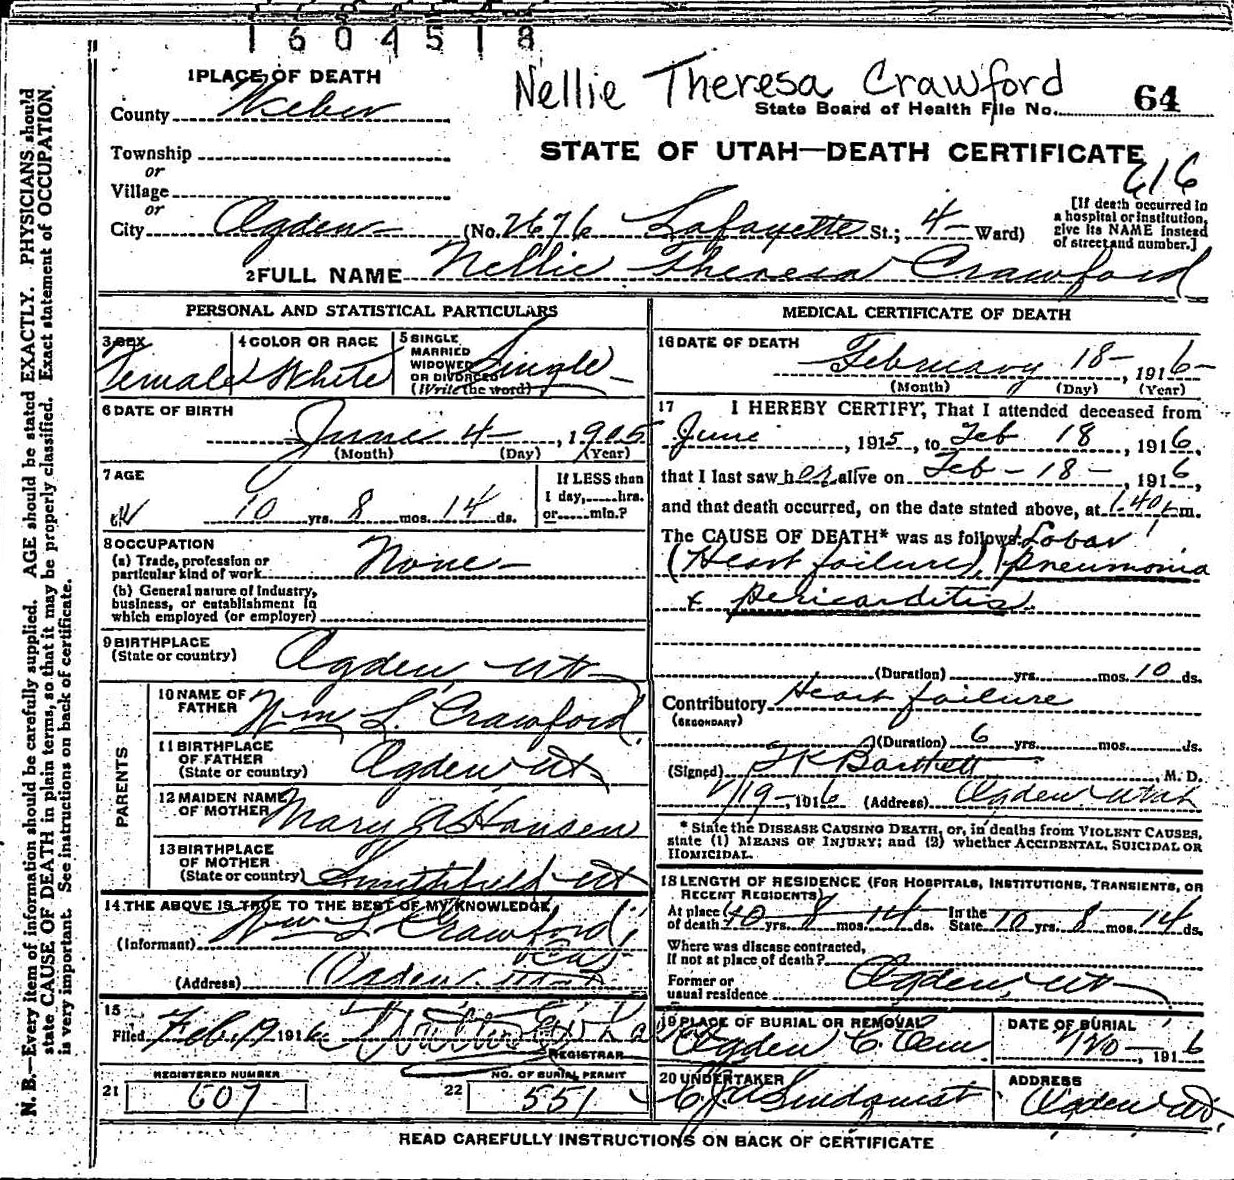 1604518
Nellie Theresa Crawford
1 PLACE OF DEATH
County Weber
State Board of Health File No. 64
Township
or
STATE OF UTAH—DEATH CERTIFICATE
Village
or
616
City Ogden (No. 2676 Lafayette St.; 4 Ward)
[If death occurred in a hospital or institution, give its NAME instead of street and number.]
2 FULL NAME Nellie Theresa Crawford
PERSONAL AND STATISTICAL PARTICULARS
3 SEX Female
4 COLOR OR RACE White
5 SINGLE MARRIED WIDOWED OR DIVORCED (Write the word) Single
6 DATE OF BIRTH
June 4 , 1905
(Month) (Day) (Year)
7 AGE
10 yrs. 8 mos. 14 ds.
If LESS than 1 day, hrs. or min.?
8 OCCUPATION
(a) Trade, profession or particular kind of work None
(b) General nature of Industry, business, or establishment in which employed (or employer)
9 BIRTHPLACE
(State or country) Ogden Ut
PARENTS
10 NAME OF FATHER Wm L. Crawford
11 BIRTHPLACE OF FATHER (State or country) Ogden Ut
12 MAIDEN NAME OF MOTHER Mary A Hansen
13 BIRTHPLACE OF MOTHER (State or country) Smithfield Ut
14 THE ABOVE IS TRUE TO THE BEST OF MY KNOWLEDGE
(Informant) Wm L Crawford
(Address) Ogden
15
Filed Feb. 19 1916
REGISTRAR
REGISTERED NUMBER
21 607
NO. OF BURIAL PERMIT
22 551
MEDICAL CERTIFICATE OF DEATH
16 DATE OF DEATH
February 18- , 1916
(Month) (Day) (Year)
17 I HEREBY CERTIFY, That I attended deceased from
June , 1915, to Feb 18 , 1916,
that I last saw her alive on Feb-18- , 1916,
and that death occurred, on the date stated above, at 1.40 m.
The CAUSE OF DEATH* was as follows: Lobar
(Heart failure), pneumonia
& pericarditis
(Duration) yrs. mos. 10 ds.
Contributory Heart failure
(SECONDARY)
(Duration) 6 yrs. mos. ds.
(Signed) Bartlett , M. D.
2/19-, 1916 (Address) Ogden Utah
* State the DISEASE CAUSING DEATH, or, in deaths from VIOLENT CAUSES, state (1) MEANS OF INJURY; and (2) whether ACCIDENTAL, SUICIDAL OR HOMICIDAL.
18 LENGTH OF RESIDENCE (FOR HOSPITALS, INSTITUTIONS, TRANSIENTS, OR RECENT RESIDENTS)
At place of death 10 yrs. 8 mos. 14 ds. In the State 10 yrs. 8 mos. 14 ds.
Where was disease contracted, If not at place of death?
Former or usual residence Ogden, Ut
19 PLACE OF BURIAL OR REMOVAL Ogden C Cem
DATE OF BURIAL 2/20-, 1916
20 UNDERTAKER Lindquist
ADDRESS Ogden Ut
READ CAREFULLY INSTRUCTIONS ON BACK OF CERTIFICATE
N. B.—Every item of information should be carefully supplied. AGE should be stated EXACTLY. PHYSICIANS should
state CAUSE OF DEATH in plain terms, so that it may be properly classified. Exact statement of OCCUPATION
is very important. See instructions on back of certificate.